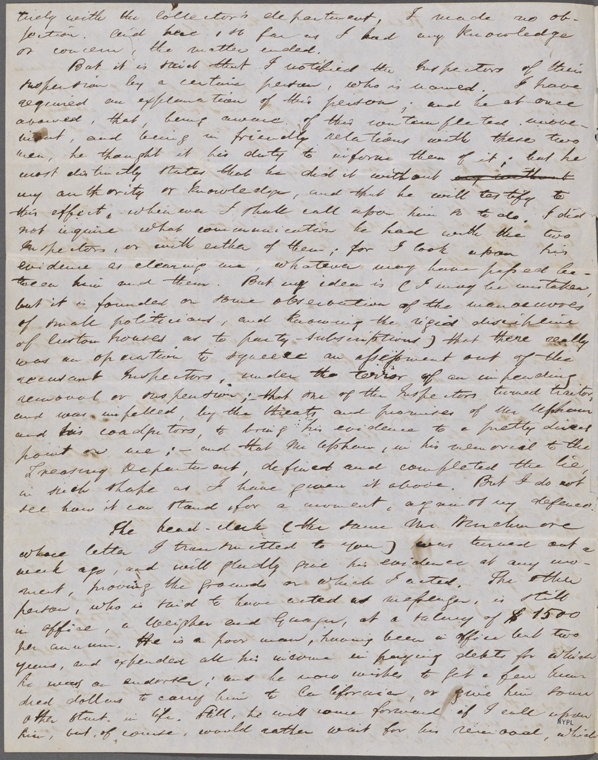 tirely with the Collector's department, I made no ob-
jection. And here, so far as I had any knowledge
or concern, the matter ended.
But it is said that I notified the Inspectors of their
suspension by a certain person, who is named. I have
required an explanation of this person; and he at once
avowed, that, being aware of this contemplated move-
ment, and being in friendly relations with these two
men, he thought it his duty to inform them of it; but he
most distinctly states that he did it without
my authority or knowledge, and that he will testify to
this effect, whenever I shall call upon him so to do. I did
not inquire what communication he had with the two
Inspectors, or with either of them; for I look upon his
evidence as clearing me, whatever may have passed be-
tween him and them. But my idea is (I may be mistaken,
but it is founded on some observation of the manoeuvres
of small politicians, and knowing the rigid discipline
of Custom Houses as to party-subscriptions) that there really
was an operation to squeeze an assessment out of the
recusant Inspectors, under the terror of an impending
removal or suspension; that one of the Inspectors turned traitor,
and was impelled, by the threats and promises of Mr. Upham
and his coadjutors, to bring his evidence to a pretty direct
point on me; - and that Mr. Upham, in his memorial to the
Treasury Department, defined and completed the lie,
in such shape as I have given it above. But I do not
see how it can stand, for a moment, against my defence.
The head-clerk (the same Mr Burchmore
whose letter I transmitted to you) was turned out a
week ago, and will gladly give his evidence at any mo-
ment, proving the grounds on which I acted. The other
person, who is said to have acted as messenger, is still
in office, a Weigher and Guager, at a salary of $1500
per annum. He is a poor man, having been in office but two
years, and expended all his income in paying debts for which
he was an endorser; and he now wishes to get a few hun-
dred dollars to carry him to California, or give him some
other start in life. Still, he will come forward if I call upon
him, but, of course, would rather wait for his removal, which
NYPL